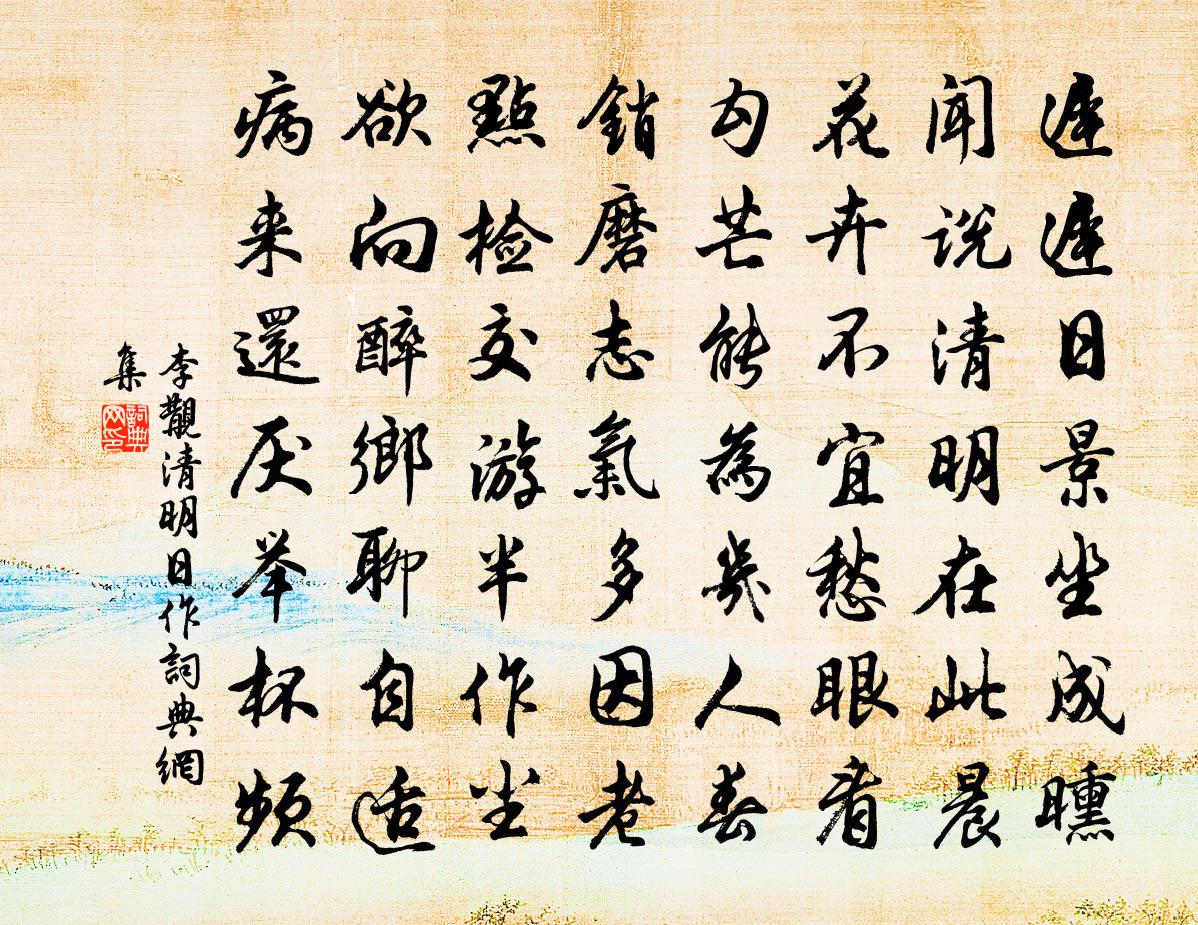 遲遲日景坐成曛
闻说清明在此晨
花卉不宜愁眼看
勾芒能為幾人春
銷磨志氣多因老
點检交游半作尘
欲向醉鄉聊自适
病来還厌举杯频
李覯清明日作詞典網
集
詞典网印